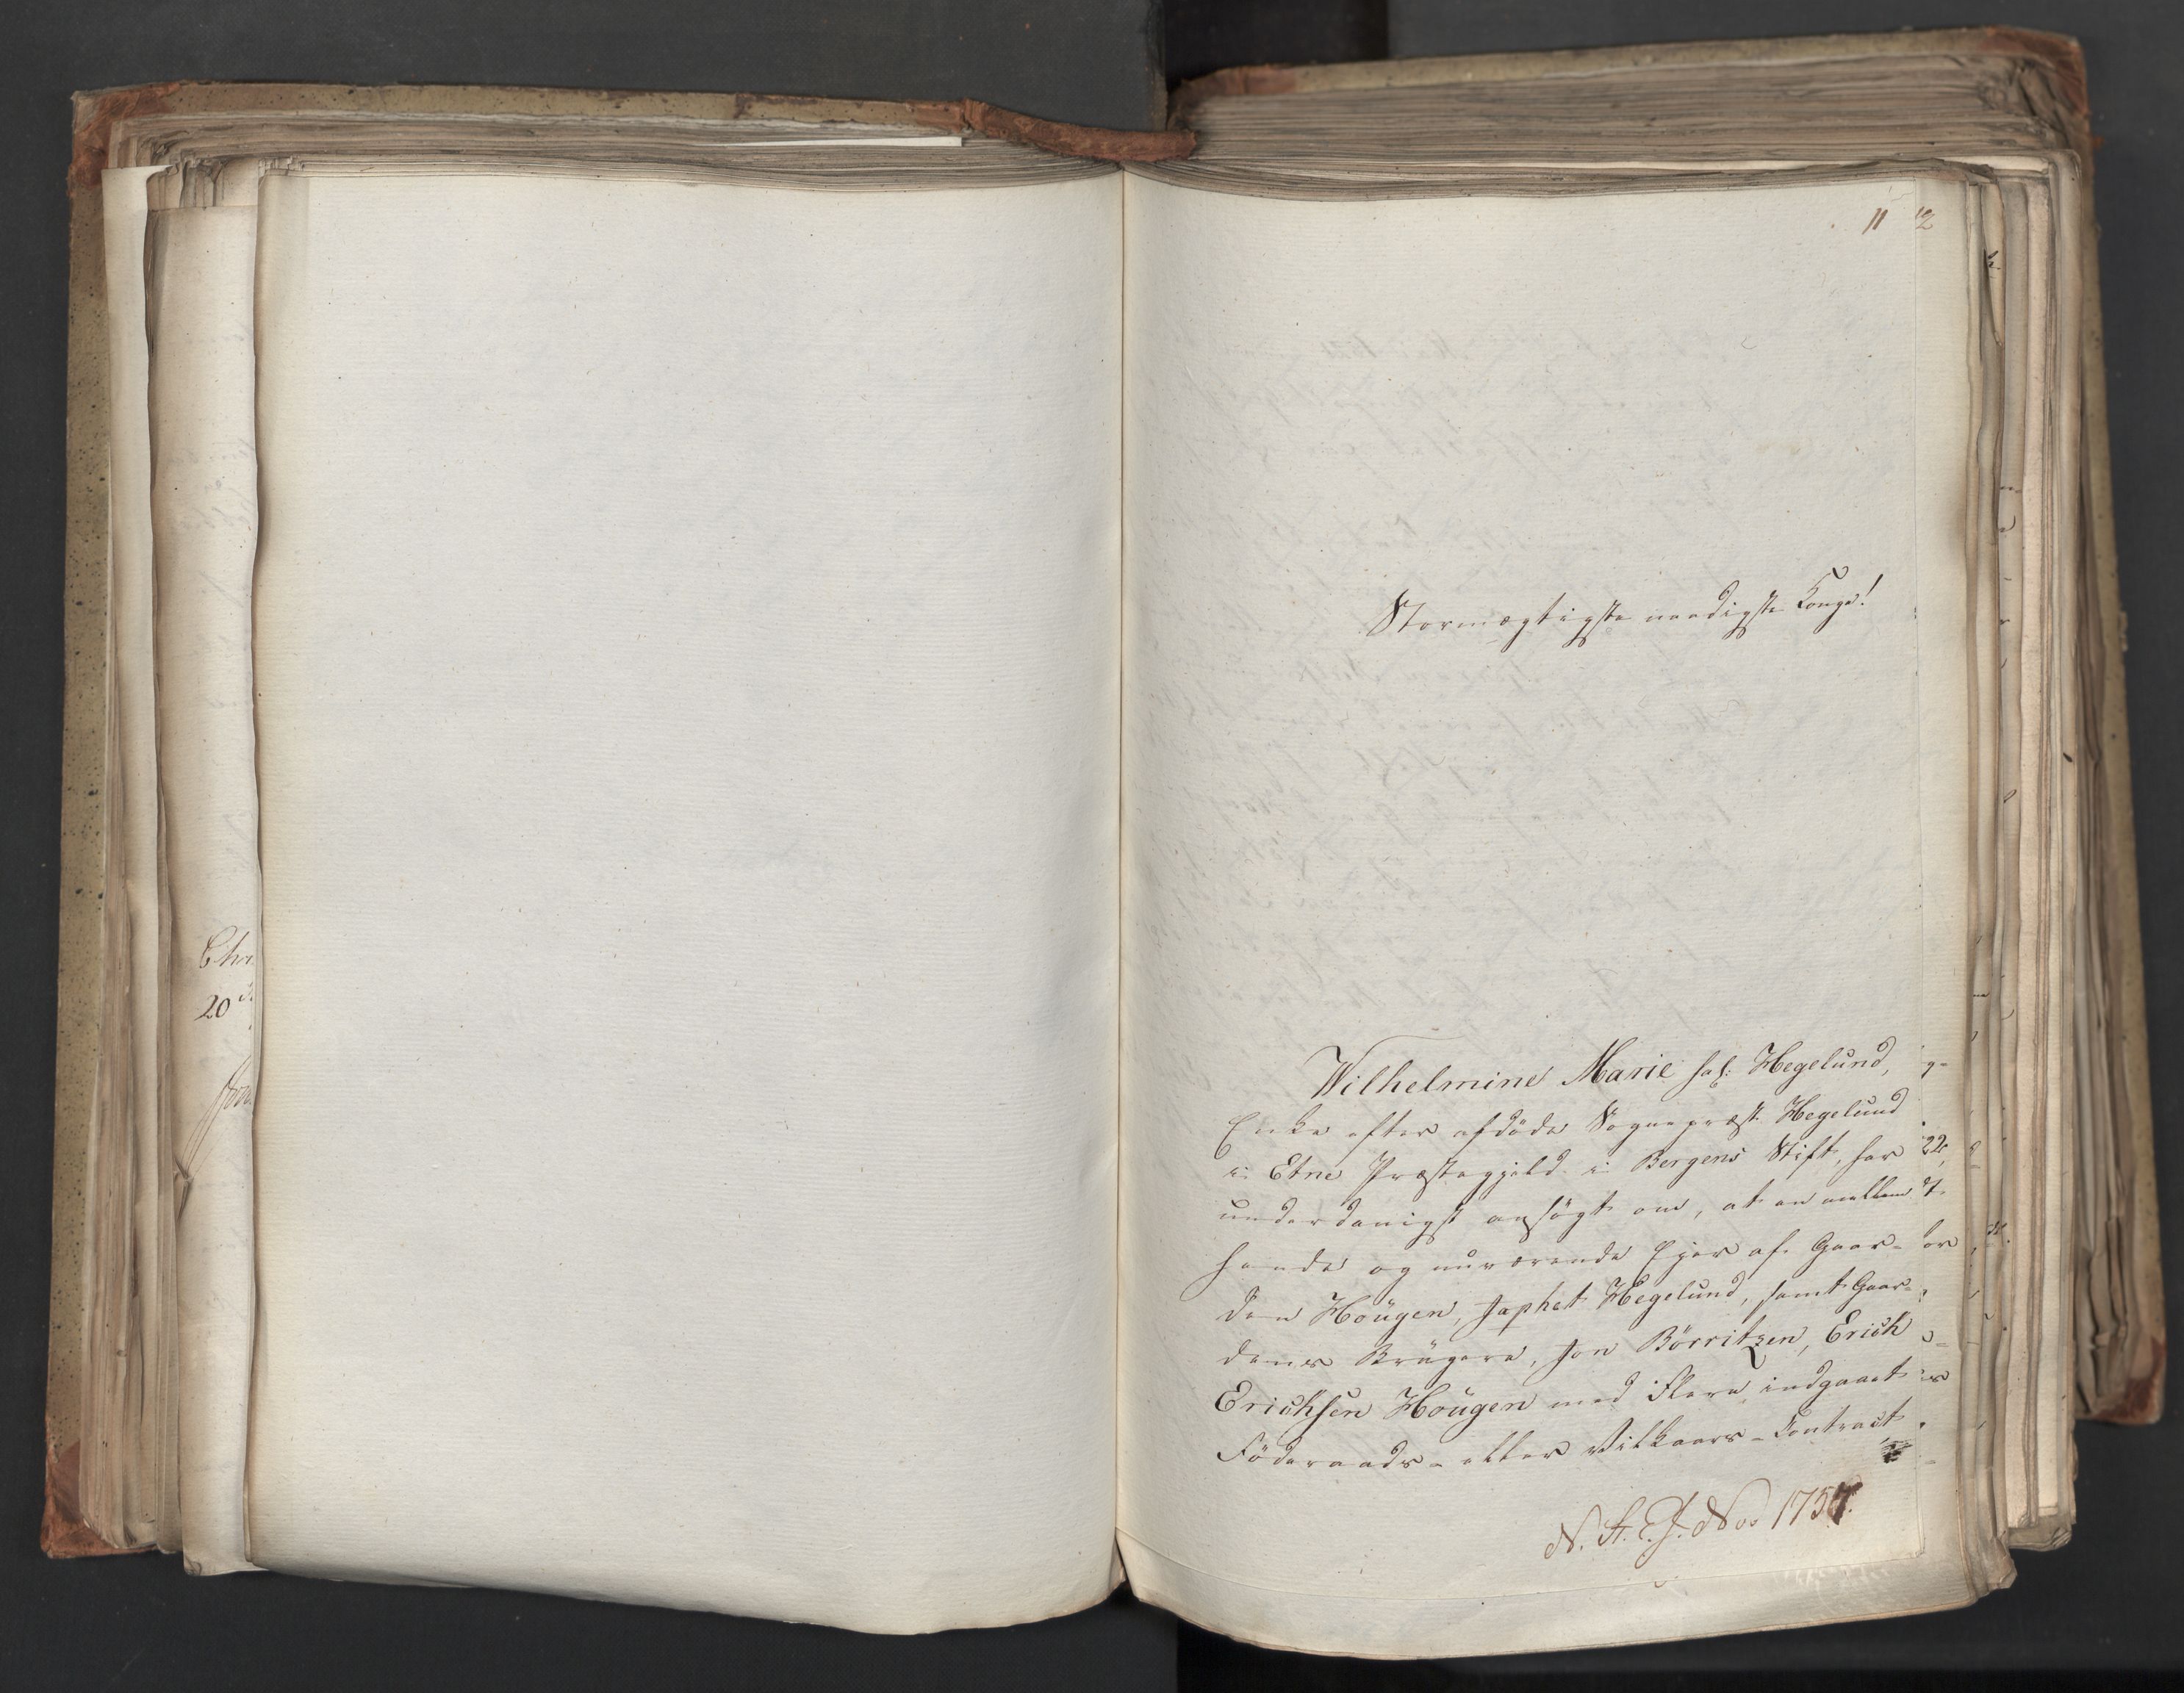 11 12
Stormægtigste naadigste Konge!
Wilhelmine Marie sal: Hegelund,
Enke efter afdöde Sognepræst Hegelund
i Etne Præstegjeld i Bergens Stift, har
underdanigst ansögt om, at en mellem
hende og nuværende Ejer af Gaar-
den Hougen, Japhet Hegelund, samt Gaar-
dens Brugere, Jon Börritzen, Erich
Erichsen Hougen med Flere indgaaet
Föderaads- eller Vilkaars-Contract
N. St. E. J. No 1757.
Chri
20